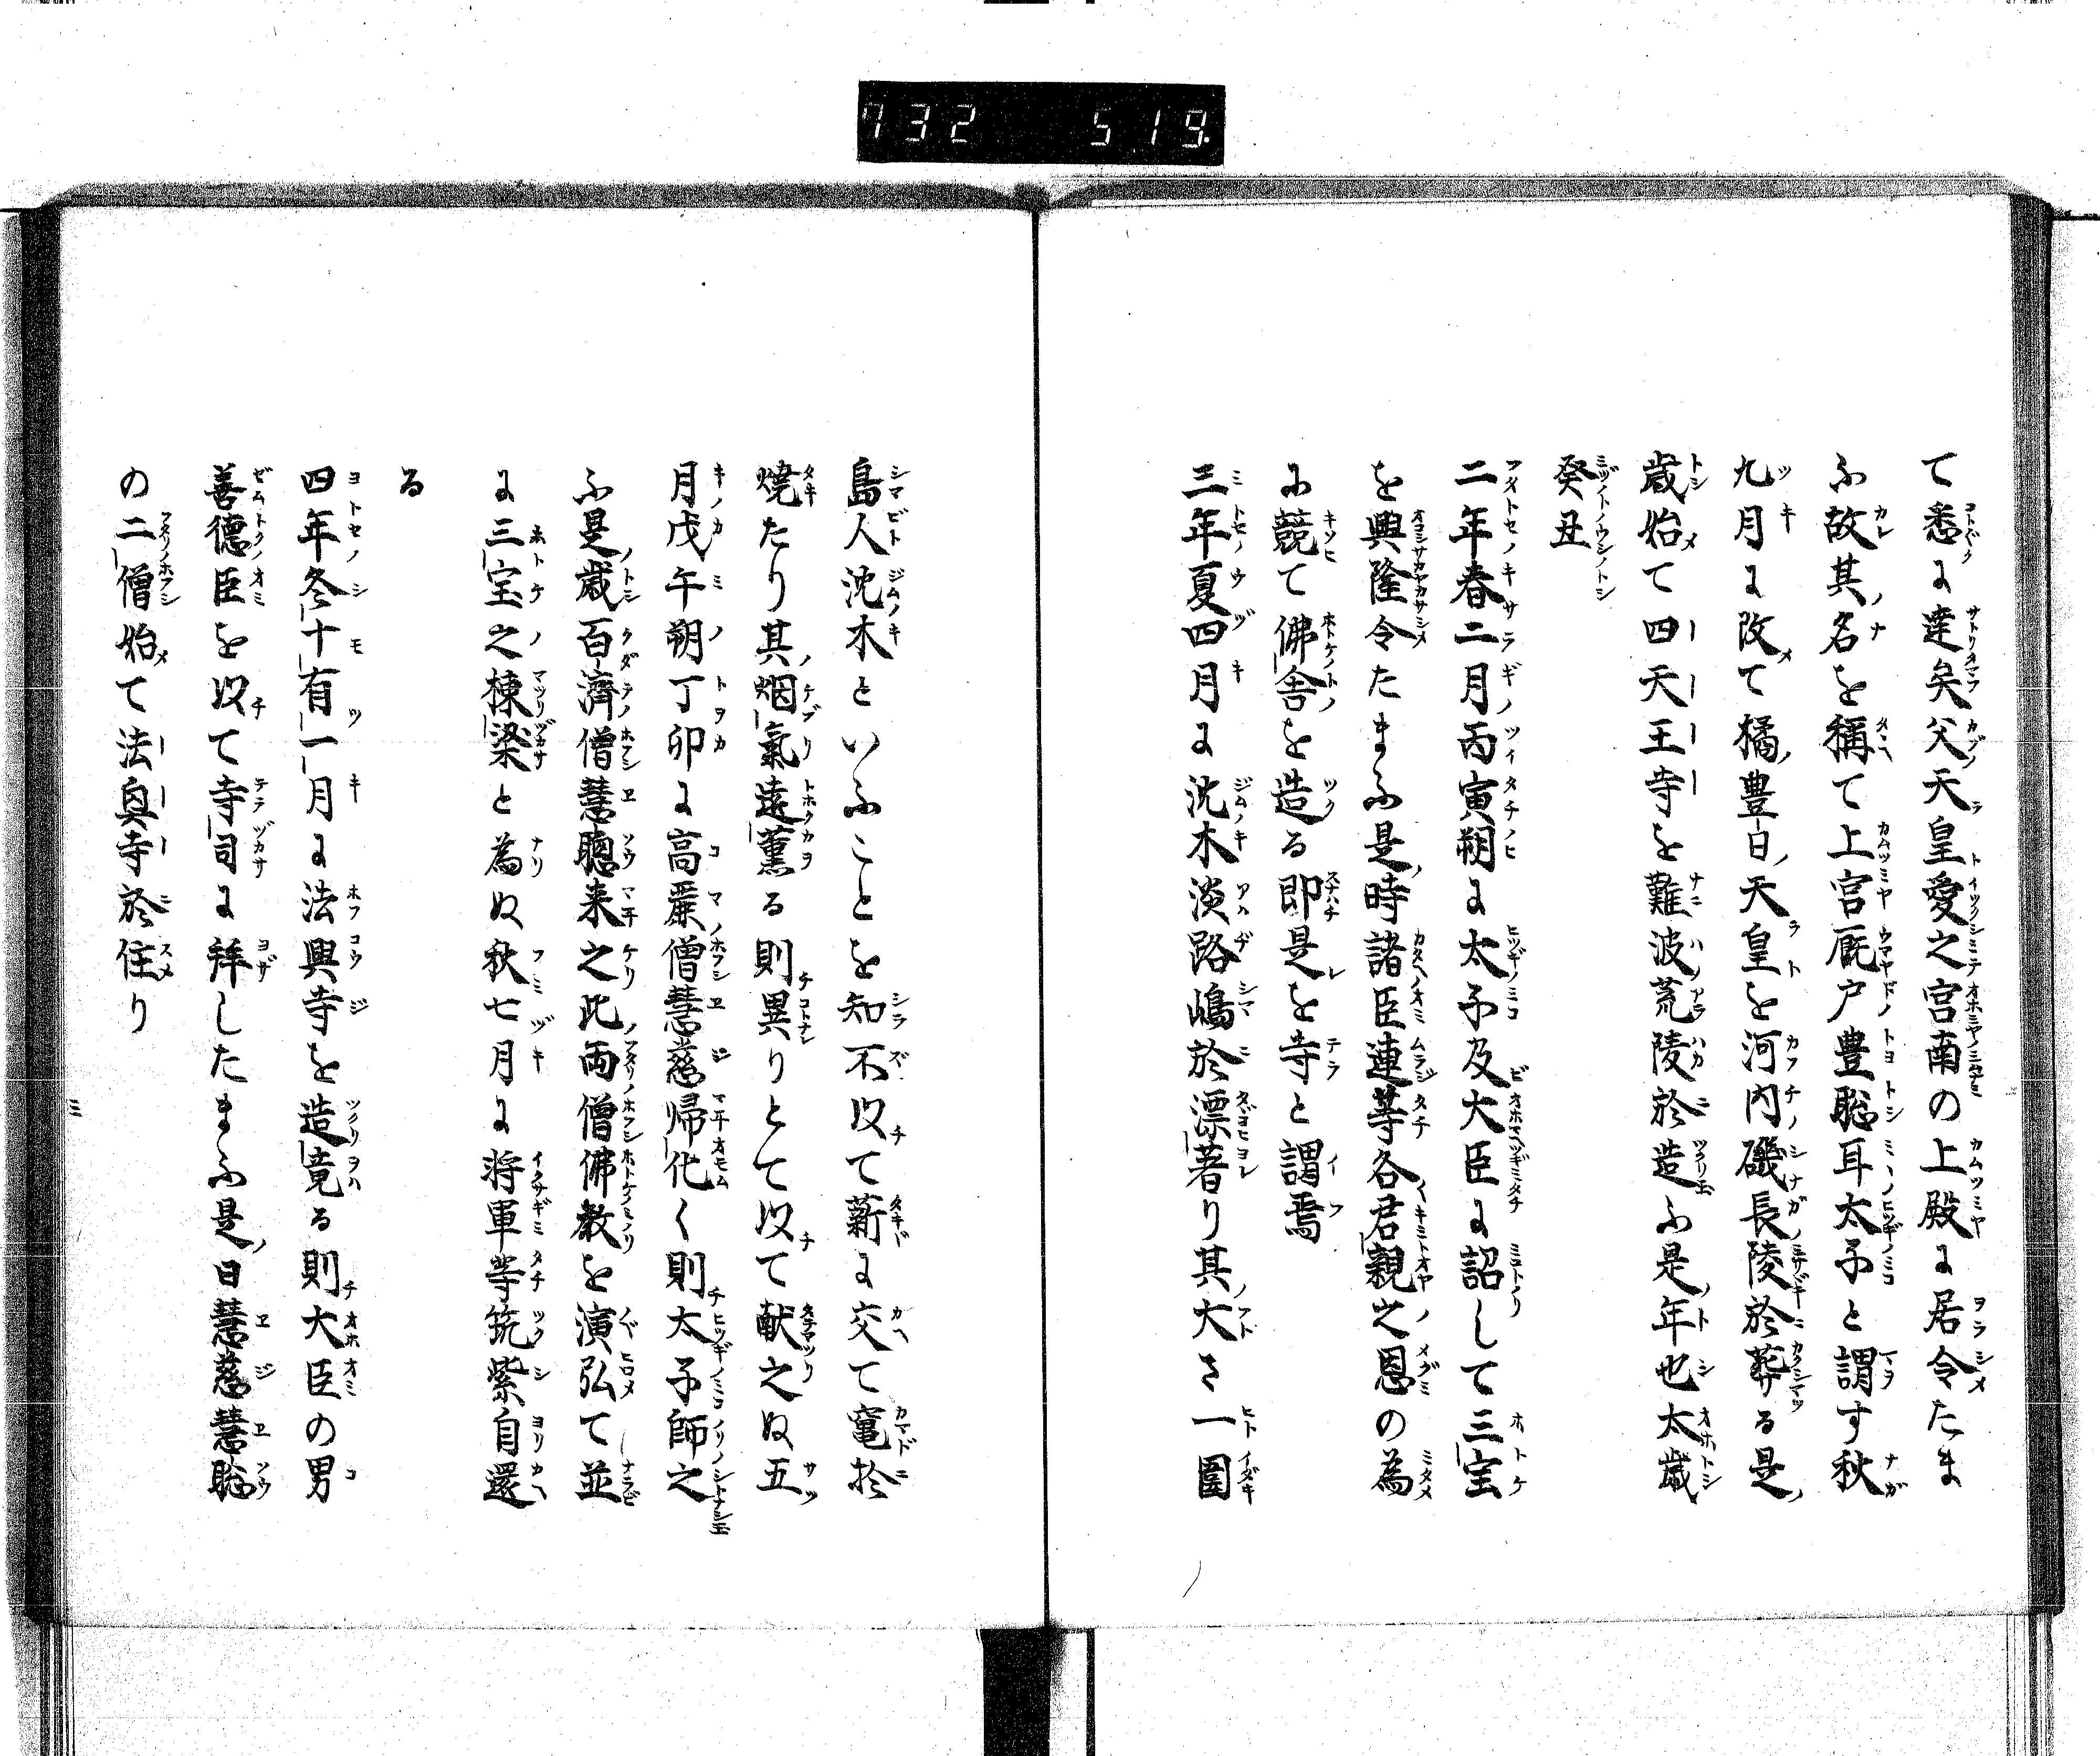 732 519.
て悉に達矣父天皇愛之宮南の上殿に居令たま
ふ故其名を稱て上宮厩戸豊聡耳太子と謂す秋
九月に改て橘豊日天皇を河内磯長陵於葬る是
歳始て四天王寺を難波荒陵於造ふ是年也太歳
癸丑
二年春二月丙寅朔に太子及大臣に詔して三宝
を興隆令たまふ是時諸臣連等各君親之恩の為
に競て佛舎を造る即是を寺と謂焉
三年夏四月に沈木淡路嶋於漂著り其大さ一圍
島人沈木といふことを知不以て薪に交て竃於
焼たり其烟氣遠薫る則異りとて以て献之ぬ五
月戊午朔丁卯に高麗僧慧慈帰化く則太子師之
ふ是歳百濟僧慧聰来之此両僧佛教を演弘て並
に三宝之棟梁と為ぬ秋七月に将軍等筑紫自還
る
四年冬十有一月に法興寺を造竟る則大臣の男
善德臣を以て寺司に拜したまふ是日慧慈慧聡
の二僧始て法興寺於住り